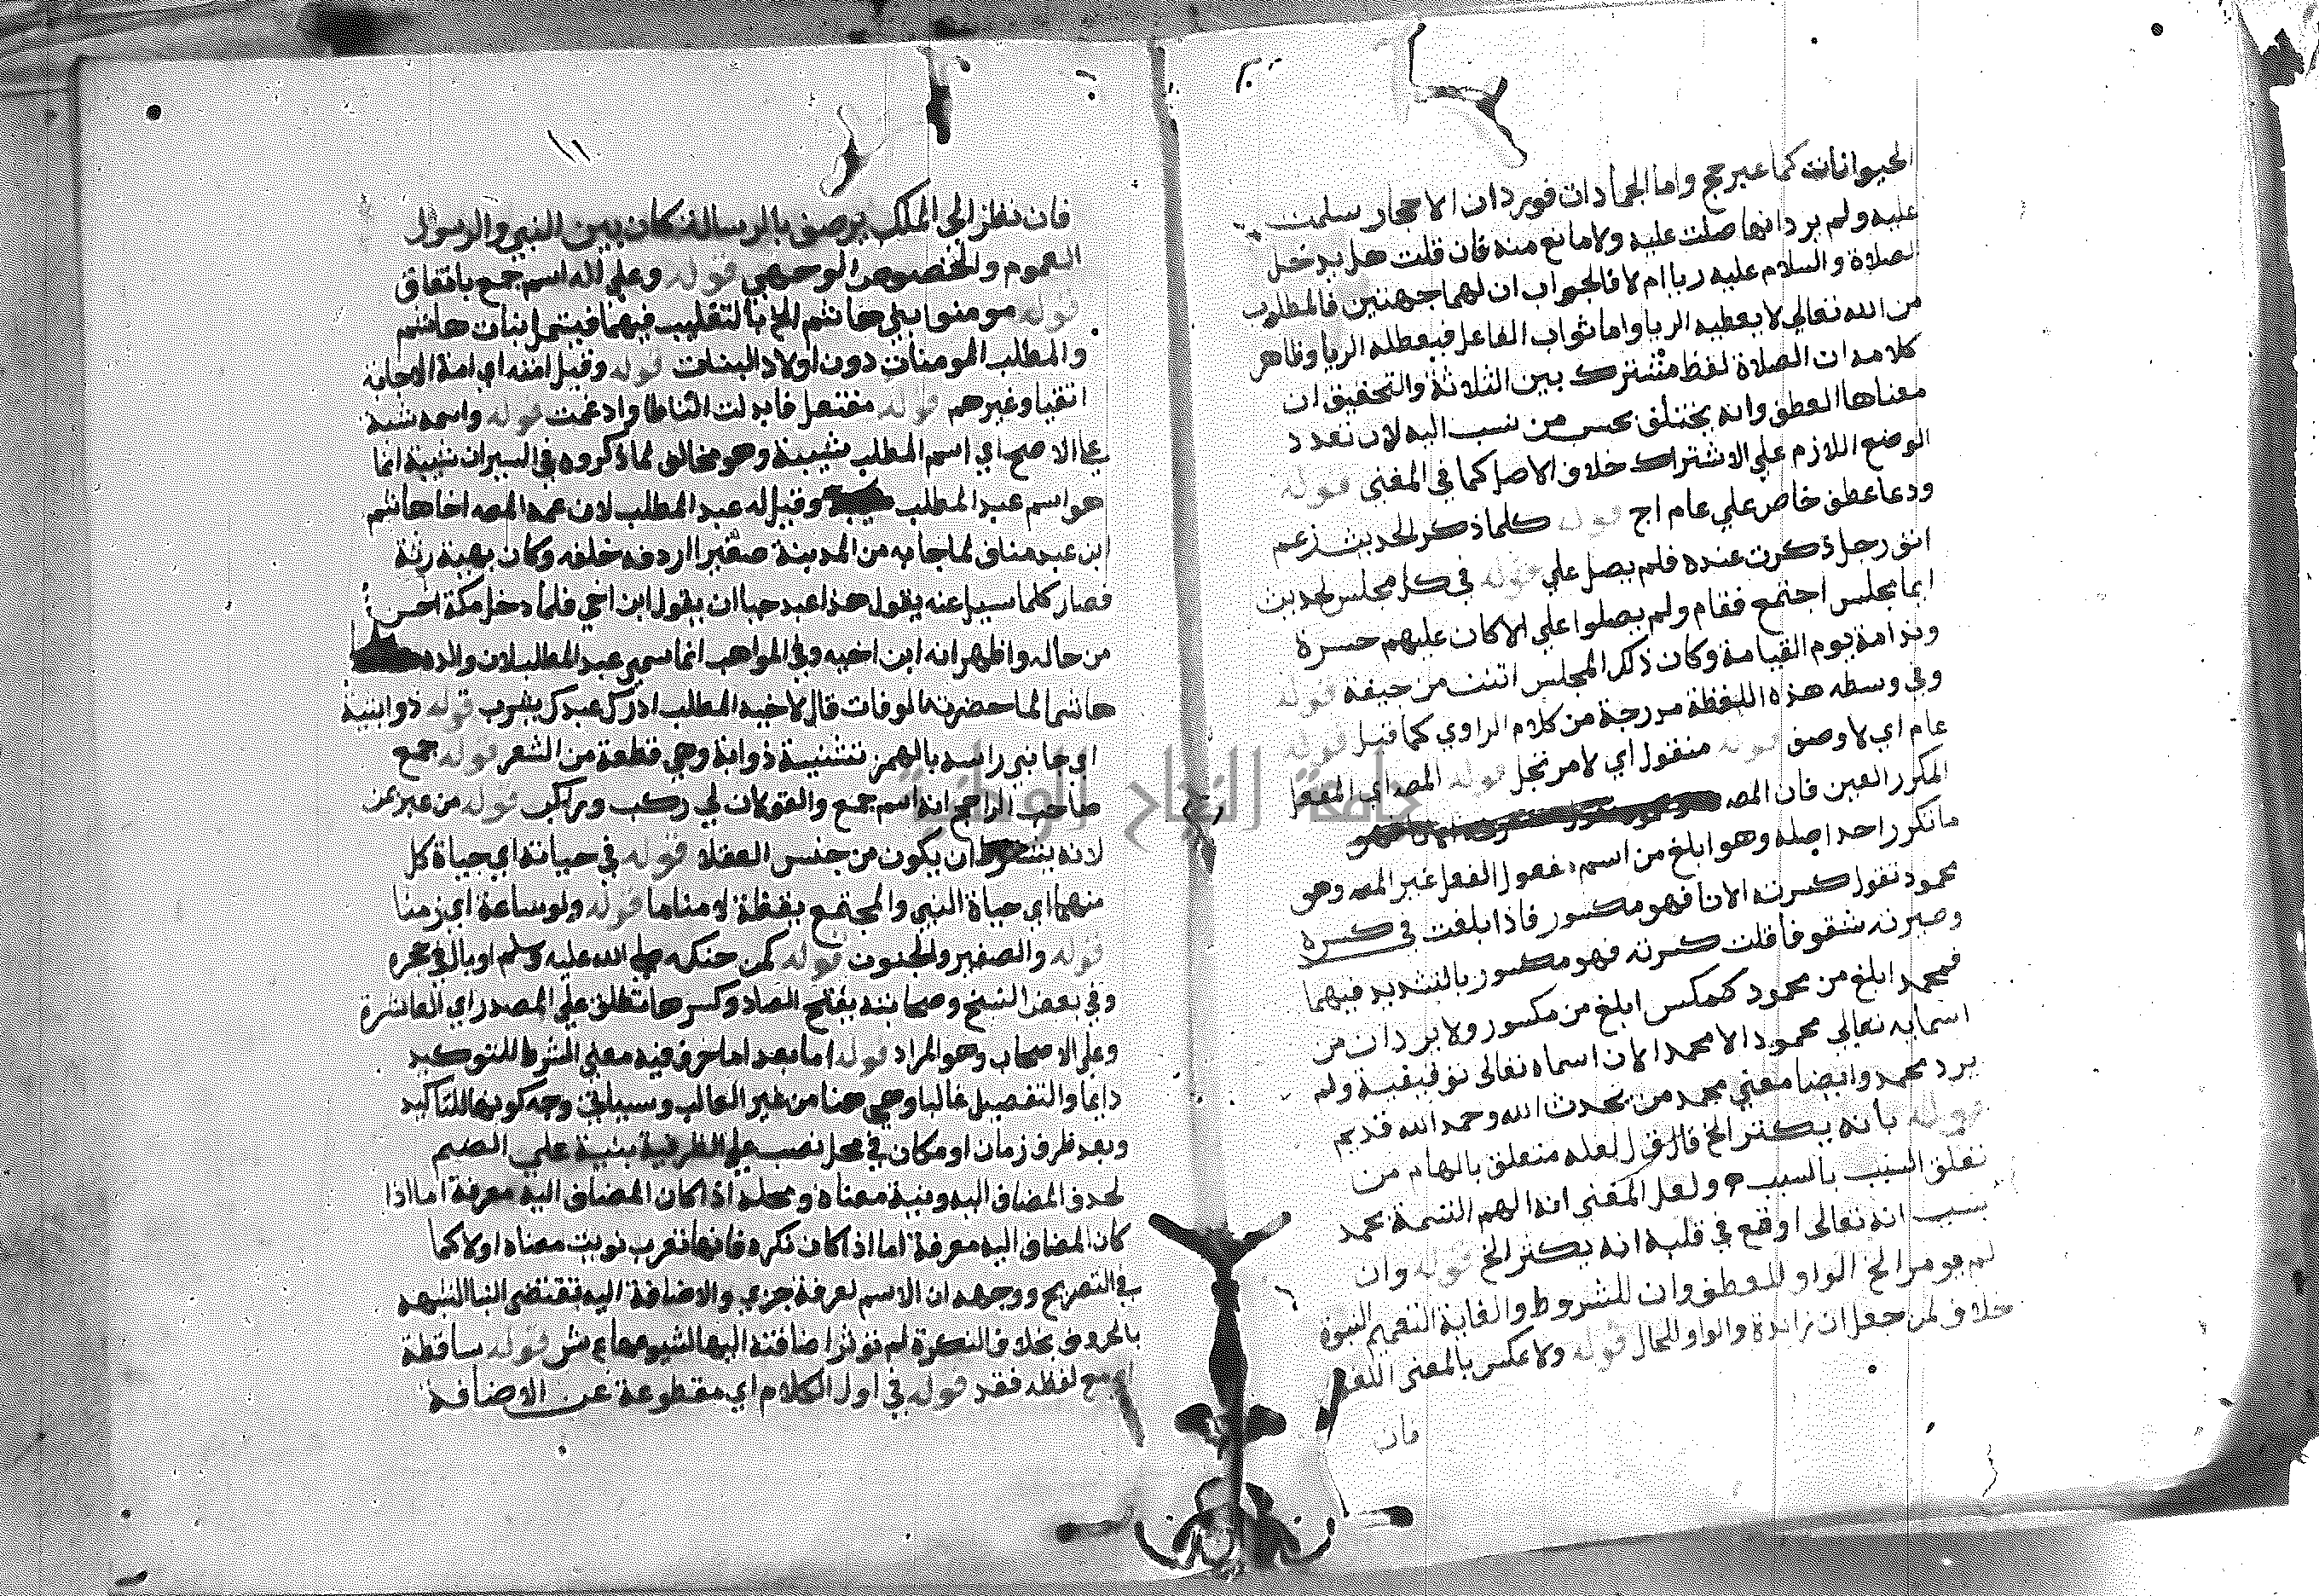 الحيوانات كما عبر حج واما الجمادات فورد ان الاحجار سلمت
عليه ولم يرد انها صلت عليه ولا مانع منه فان قلت هل يدخل
الصلاة والسلام عليه ريا ام لا فالجواب ان لهما جهتين فالمطلوب
من الله تعالى لا يعطيه الريا واما ثواب الفاعل فيعطله الريا وظاهر
كلامه ان الصلاة لفظ مشترك بين الثلاثة والتحقيق ان
معناها العطف وانه يختلف بحسب من نسب اليه لان تعدد
الوضع اللازم علي الاشتراك خلاف الاصل كما في المغني قوله
ودعا عطف خاص علي عام اج قوله كلما ذكر لحديث زعم
انف رجل ذكرت عنده فلم يصل علي قوله في كل مجلس لحديث
ايما مجلس اجتمع فقام ولم يصلوا علي الا كان عليهم حسرة
وندامة يوم القيامة وكان ذلك المجلس انتن من جيفة قوله
وفي وسطه هذه اللفظة مدرجة من كلام الراوي كما قيل قوله
علم اي لا وصف قوله منقول اي لا مرتجل قوله المصه اي الفعل
المكرر العين فان المصه
ما تكرر احد اصله وهو ابلغ من اسم مفعول الفعل غير المصه وهو
محمود تقول كسرت الانا فهو مكسور فاذا بلغت في كسره
وصيرته شقوفا قلت كسرته فهو مكسور بالتشديد فيهما
فمحمد ابلغ من محمود كمكسر ابلغ من مكسور ولا يرد ان من
اسمايه تعالي محمود الا محمد الان اسماه تعالى توقيفية ولم
يرد محمد وايضا معني محمد من يحدث الله وحمد الله قديم
قوله بانه يكثر الخ قال ق ل لعله متعلق بالهام من
تعلق السبب بالسبب ولعل المعني انه الهم التسمة بمحمد
بسبب انه تعالى اوقع في قلبه انه يكثر الخ قوله وان
لم يومر الخ الواو للعطف وان للشروط والغاية التعميم النبوة
خلاف لمن جعل ان زائدة والواو للحال قوله ولا عكس بالمعنى اللغو
فان
١١
فان نظر الى الملك يوصف بالرسالة كان بين النبي والرسول
العموم والخصوص الوجهي قوله وعلي اله اسم جمع باتفاق
قوله مومنوا بني هاشم الخ بالتغليب فيهما فيشمل بنات هاشم
والمطلب المومنات دون اولاد البنات قوله وقيل امته اي امة الاجابة
اتقيا وغيرهم قوله مفتعل فابدلت التا طا وادغمت قوله واسمه شيبة
علي الاصح اي اسم المطلب شيبة وهو مخالف لما ذكروه في السير ان شيبة انما
هو اسم عبد المطلب وقيل له عبد المطلب لان عمه المصه اخا هاشم
ابن عبد مناف لما جا به من المدينة صغيرا اردفه خلفه وكان بهيئة رثة
فصار كلما سيل عنه يقول هذا عبد حيا ان يقول ابن اخي فلما دخل مكة احسن
من حاله واظهر انه ابن اخيه وفي المواهب انما سمي عبد المطلب لان والده
هاشما لما حضرته الوفات قال لاخيه المطلب ادرك عبدك بيثرب قوله ذوابتية
او جانبي راسه بالهمز تثنية ذوابة وهي قطعة من الشعر قوله جمع
صاحب الراجح انه اسم جمع والقولان في ركب وراكب قوله من عبر عن
لانه يشترط ان يكون من جنس العقلا قوله في حياته اي حياة كل
منهما اي حياة النبي والمجتمع يقظة لا مناما قوله ولو ساعة اي زمنا
قوله والصغير والمجنون قوله كمن حنكه صلي الله عليه وسلم او بال في حجره
وفي بعض النسخ وصحابته بفتح الصاد وكسرها تطلق علي المصدر اي العاشرة
وعلي الاصحاب وهو المراد قوله اما بعد اما حرف فيه معني الشرط للتوكيد
دايما والتفصيل غالبا وهي هنا من غير الغالب وسياتي وجه كونها للتاكيد
وبعد ظرف زمان او مكان في محل نصب علي الظرفية بنية علي الضم
لحدف المضاف اليه ونية معناه ومحله اذا كان المضاف اليه معرفة اما اذا
كان المضاف اليه معرفة اما اذا كان نكرة فانها تعرب نويت معناه اولا كما
في التصريح ووجهه ان الاسم لعرفة جزي والاضافة اليه تقتضى البنا الشبهه
بالحروف بخلاف النكرة لم توثر اضافته اليها لشيوعها ع ش قوله ساقطة
اي مع لفظه فقد قوله في اول الكلام اي مقطوعة عن الاضافة